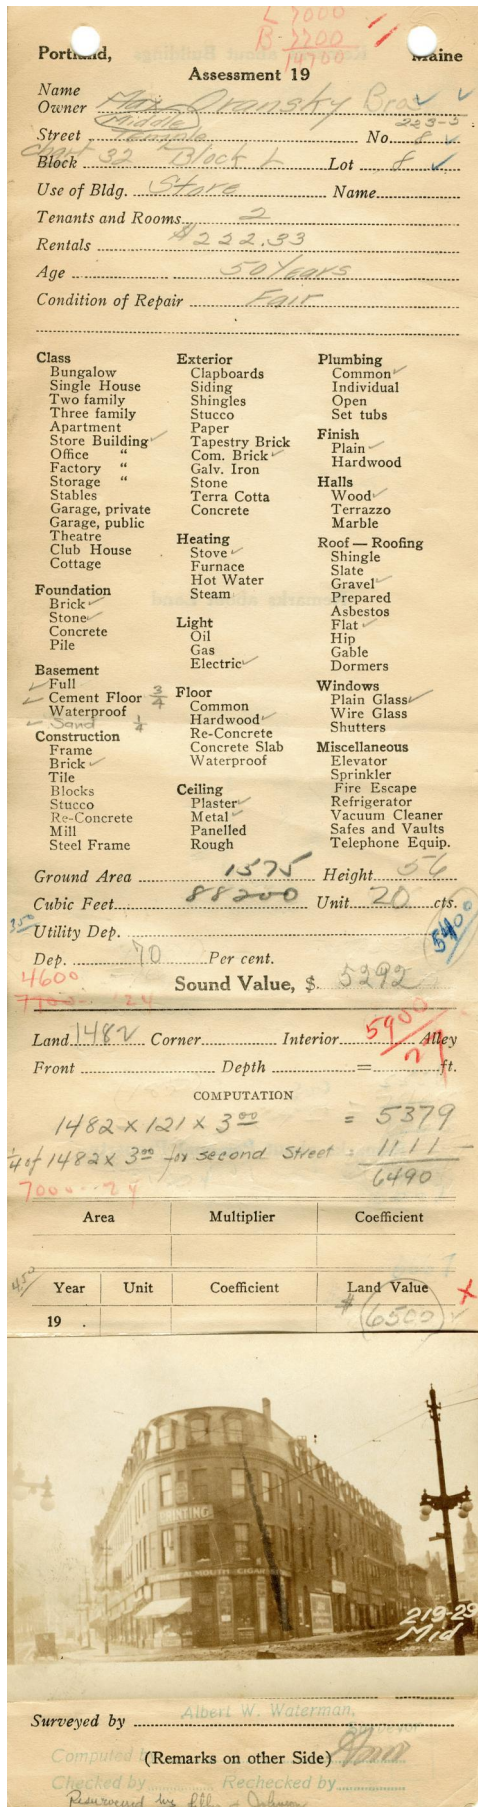 L 7000
B 7700
14700
Portland, Maine
Assessment 19
Name
Owner Max Oransky Bros
Middle 223-5
Street Temple No. 8
Chart
Block 32 Block L Lot 8
Use of Bldg. Store Name
Tenants and Rooms 2
Rentals $222.33
Age 50 Years
Condition of Repair Fair
Class
Bungalow
Single House
Two family
Three family
Apartment
Store Building ✓
Office "
Factory "
Storage "
Stables
Garage, private
Garage, public
Theatre
Club House
Cottage
Foundation
Brick ✓
Stone ✓
Concrete
Pile
Basement
✓ Full
✓ Cement Floor 3/4
Waterproof
✓ Sand 1/4
Construction
Frame
Brick ✓
Tile
Blocks
Stucco
Re-Concrete
Mill
Steel Frame
Exterior
Clapboards
Siding
Shingles
Stucco
Paper
Tapestry Brick
Com. Brick ✓
Galv. Iron
Stone
Terra Cotta
Concrete
Heating
Stove ✓
Furnace
Hot Water
Steam
Light
Oil
Gas
Electric ✓
Floor
Common
Hardwood ✓
Re-Concrete
Concrete Slab
Waterproof
Ceiling
Plaster ✓
Metal ✓
Panelled
Rough
Plumbing
Common ✓
Individual
Open
Set tubs
Finish
Plain ✓
Hardwood
Halls
Wood ✓
Terrazzo
Marble
Roof — Roofing
Shingle
Slate
Gravel ✓
Prepared
Asbestos
Flat ✓
Hip
Gable
Dormers
Windows
Plain Glass ✓
Wire Glass
Shutters
Miscellaneous
Elevator
Sprinkler
Fire Escape
Refrigerator
Vacuum Cleaner
Safes and Vaults
Telephone Equip.
Ground Area 1575 Height 56
Cubic Feet 88200 Unit 20 cts.
350 Utility Dep. 5400
Dep. 70 Per cent.
4600
7100 '24 Sound Value, $ 5292
Land 1482 Corner Interior Alley
5900/27
Front Depth = ft.
COMPUTATION
1482 x 121 x 3.00 = 5379
1/4 of 1482 x 3.00 for second Street = 1111
6490
7000 - 24
Area Multiplier Coefficient
450
Year Unit Coefficient Land Value
19 . $ 6500
PRINTING
219-29
Mid
Surveyed by Albert W. Waterman,
Surveyor
Computed by (Remarks on other Side)
Checked by Rechecked by
Resurveyed by